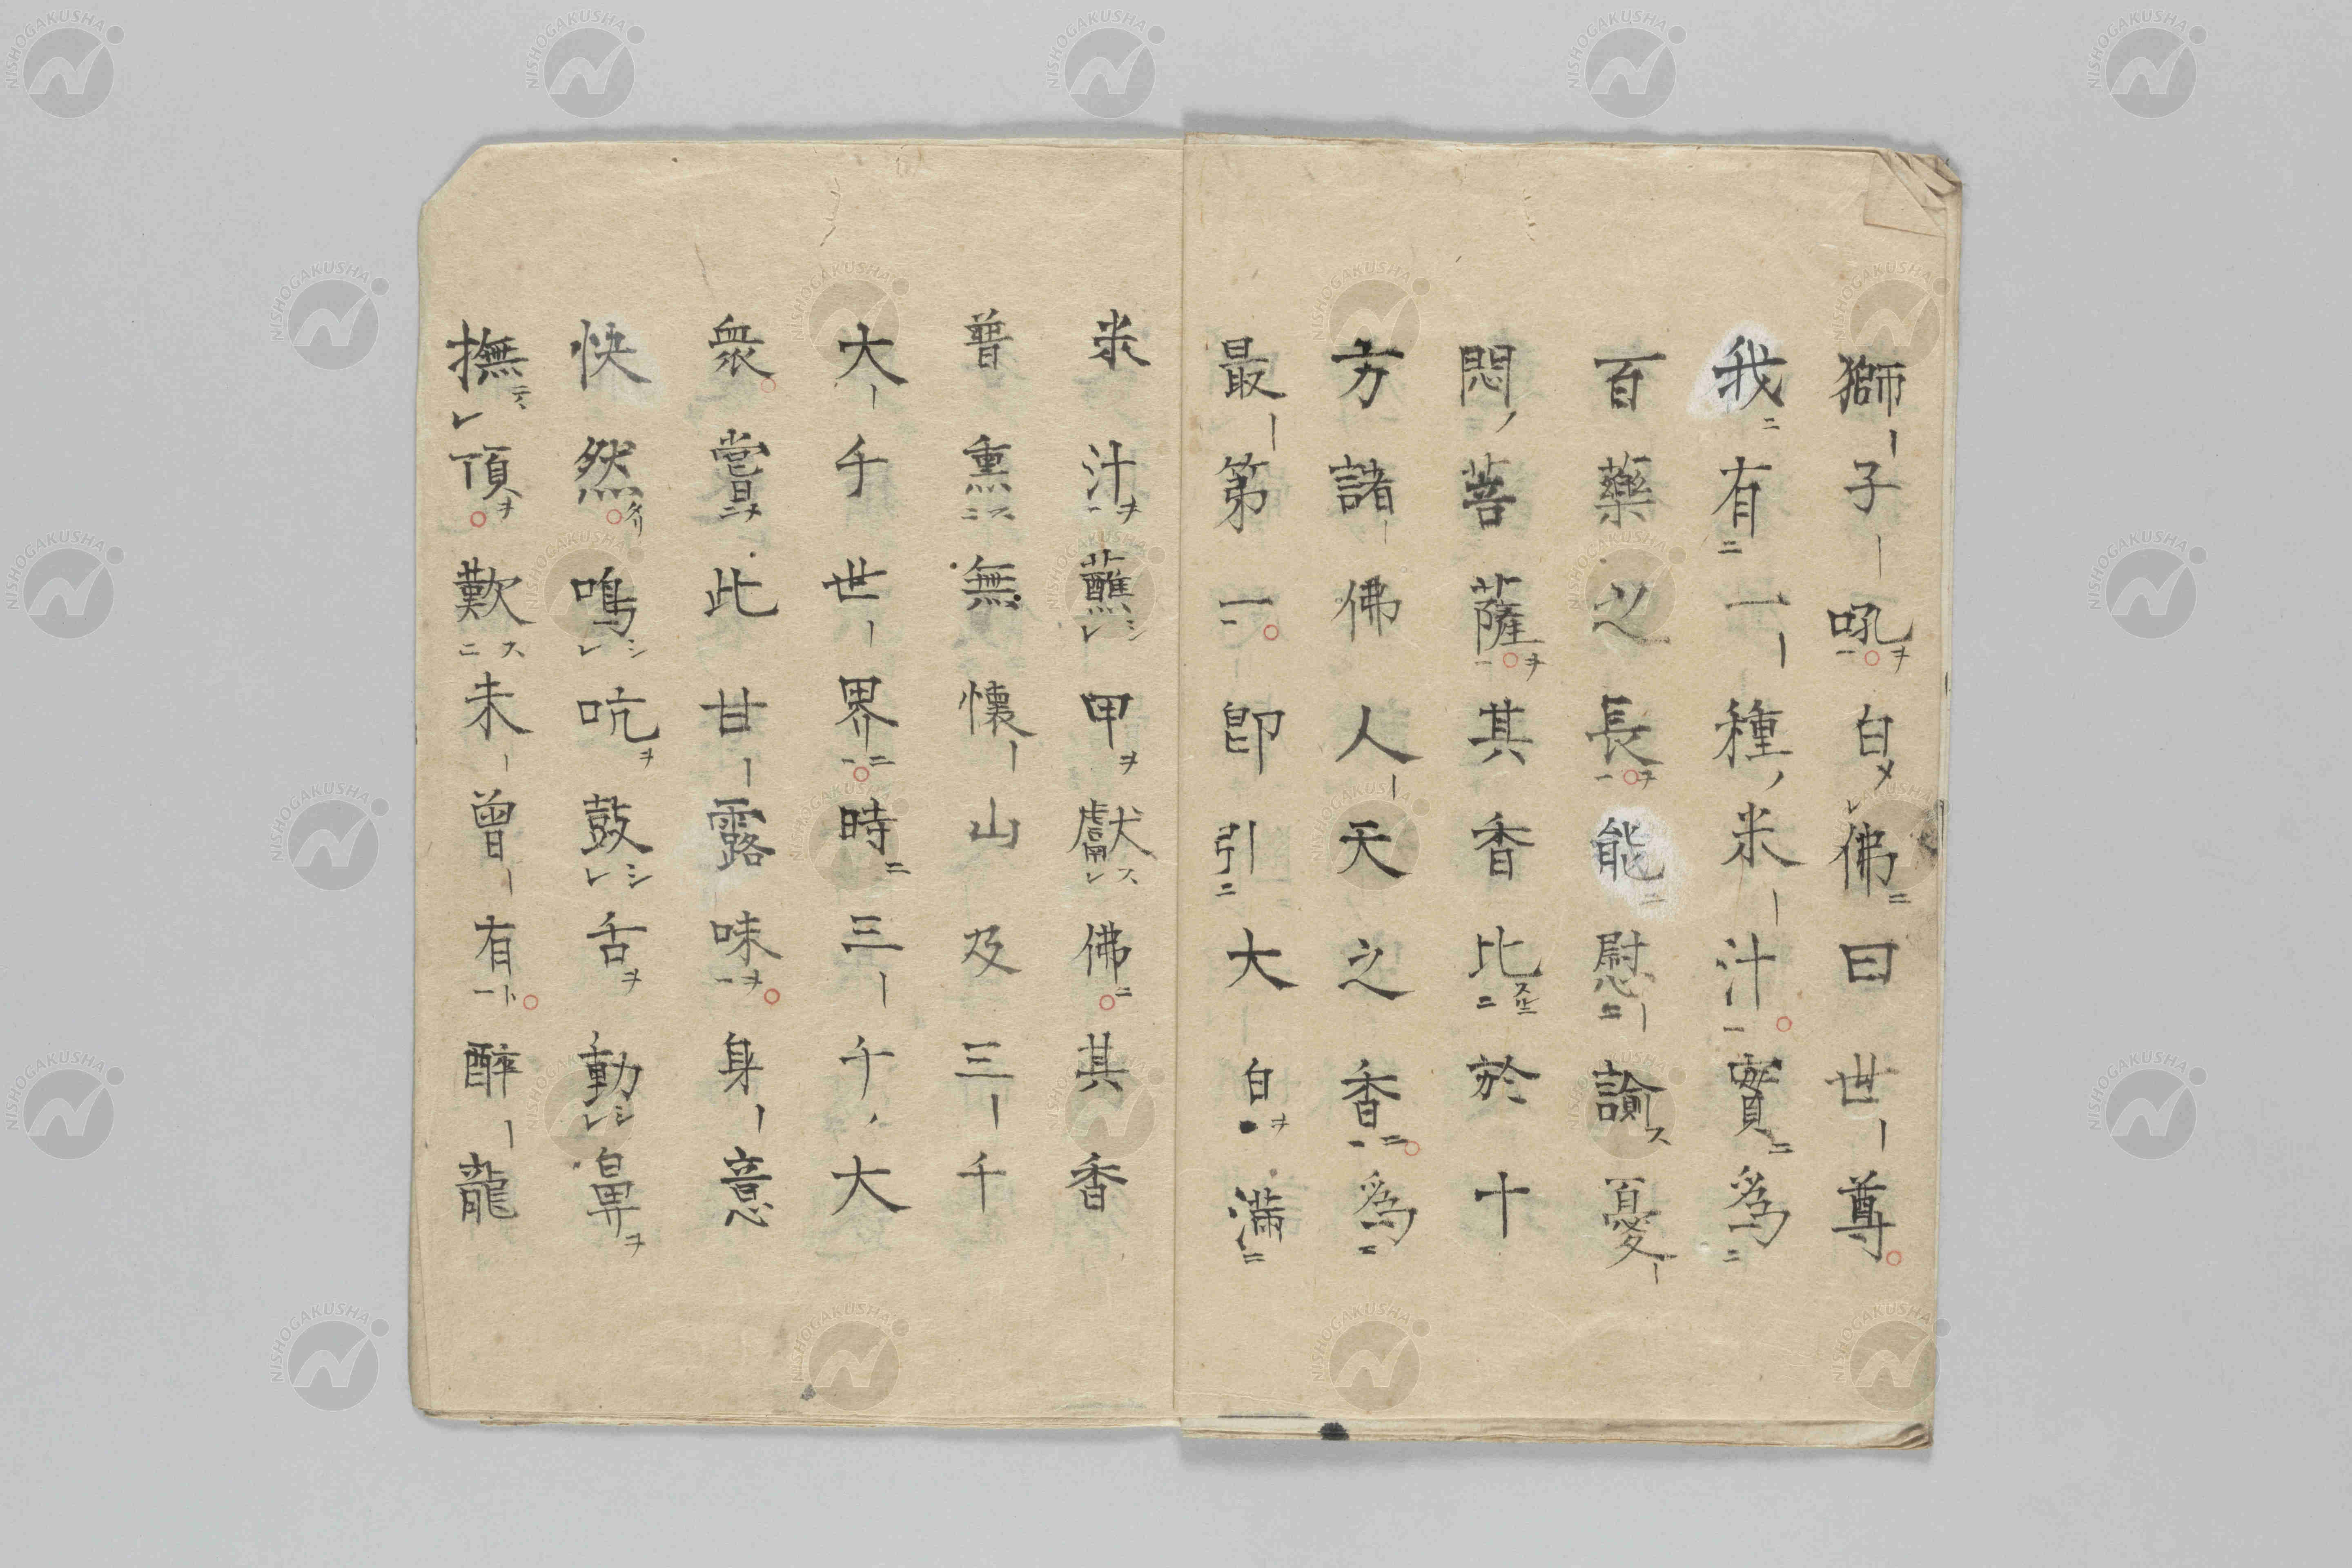 獅子吼白佛曰世尊
我有一種米汁實爲
百藥之長能慰諭憂
悶菩薩其香比於十
方諸佛人天之香爲
最第一卽引大白滿
米汁蘸甲獻佛其香
普熏無懷山及三千
大千世界時三千大
衆嘗此甘露味身意
快然鳴吭鼓舌動鼻
撫頂歎未曾有醉龍